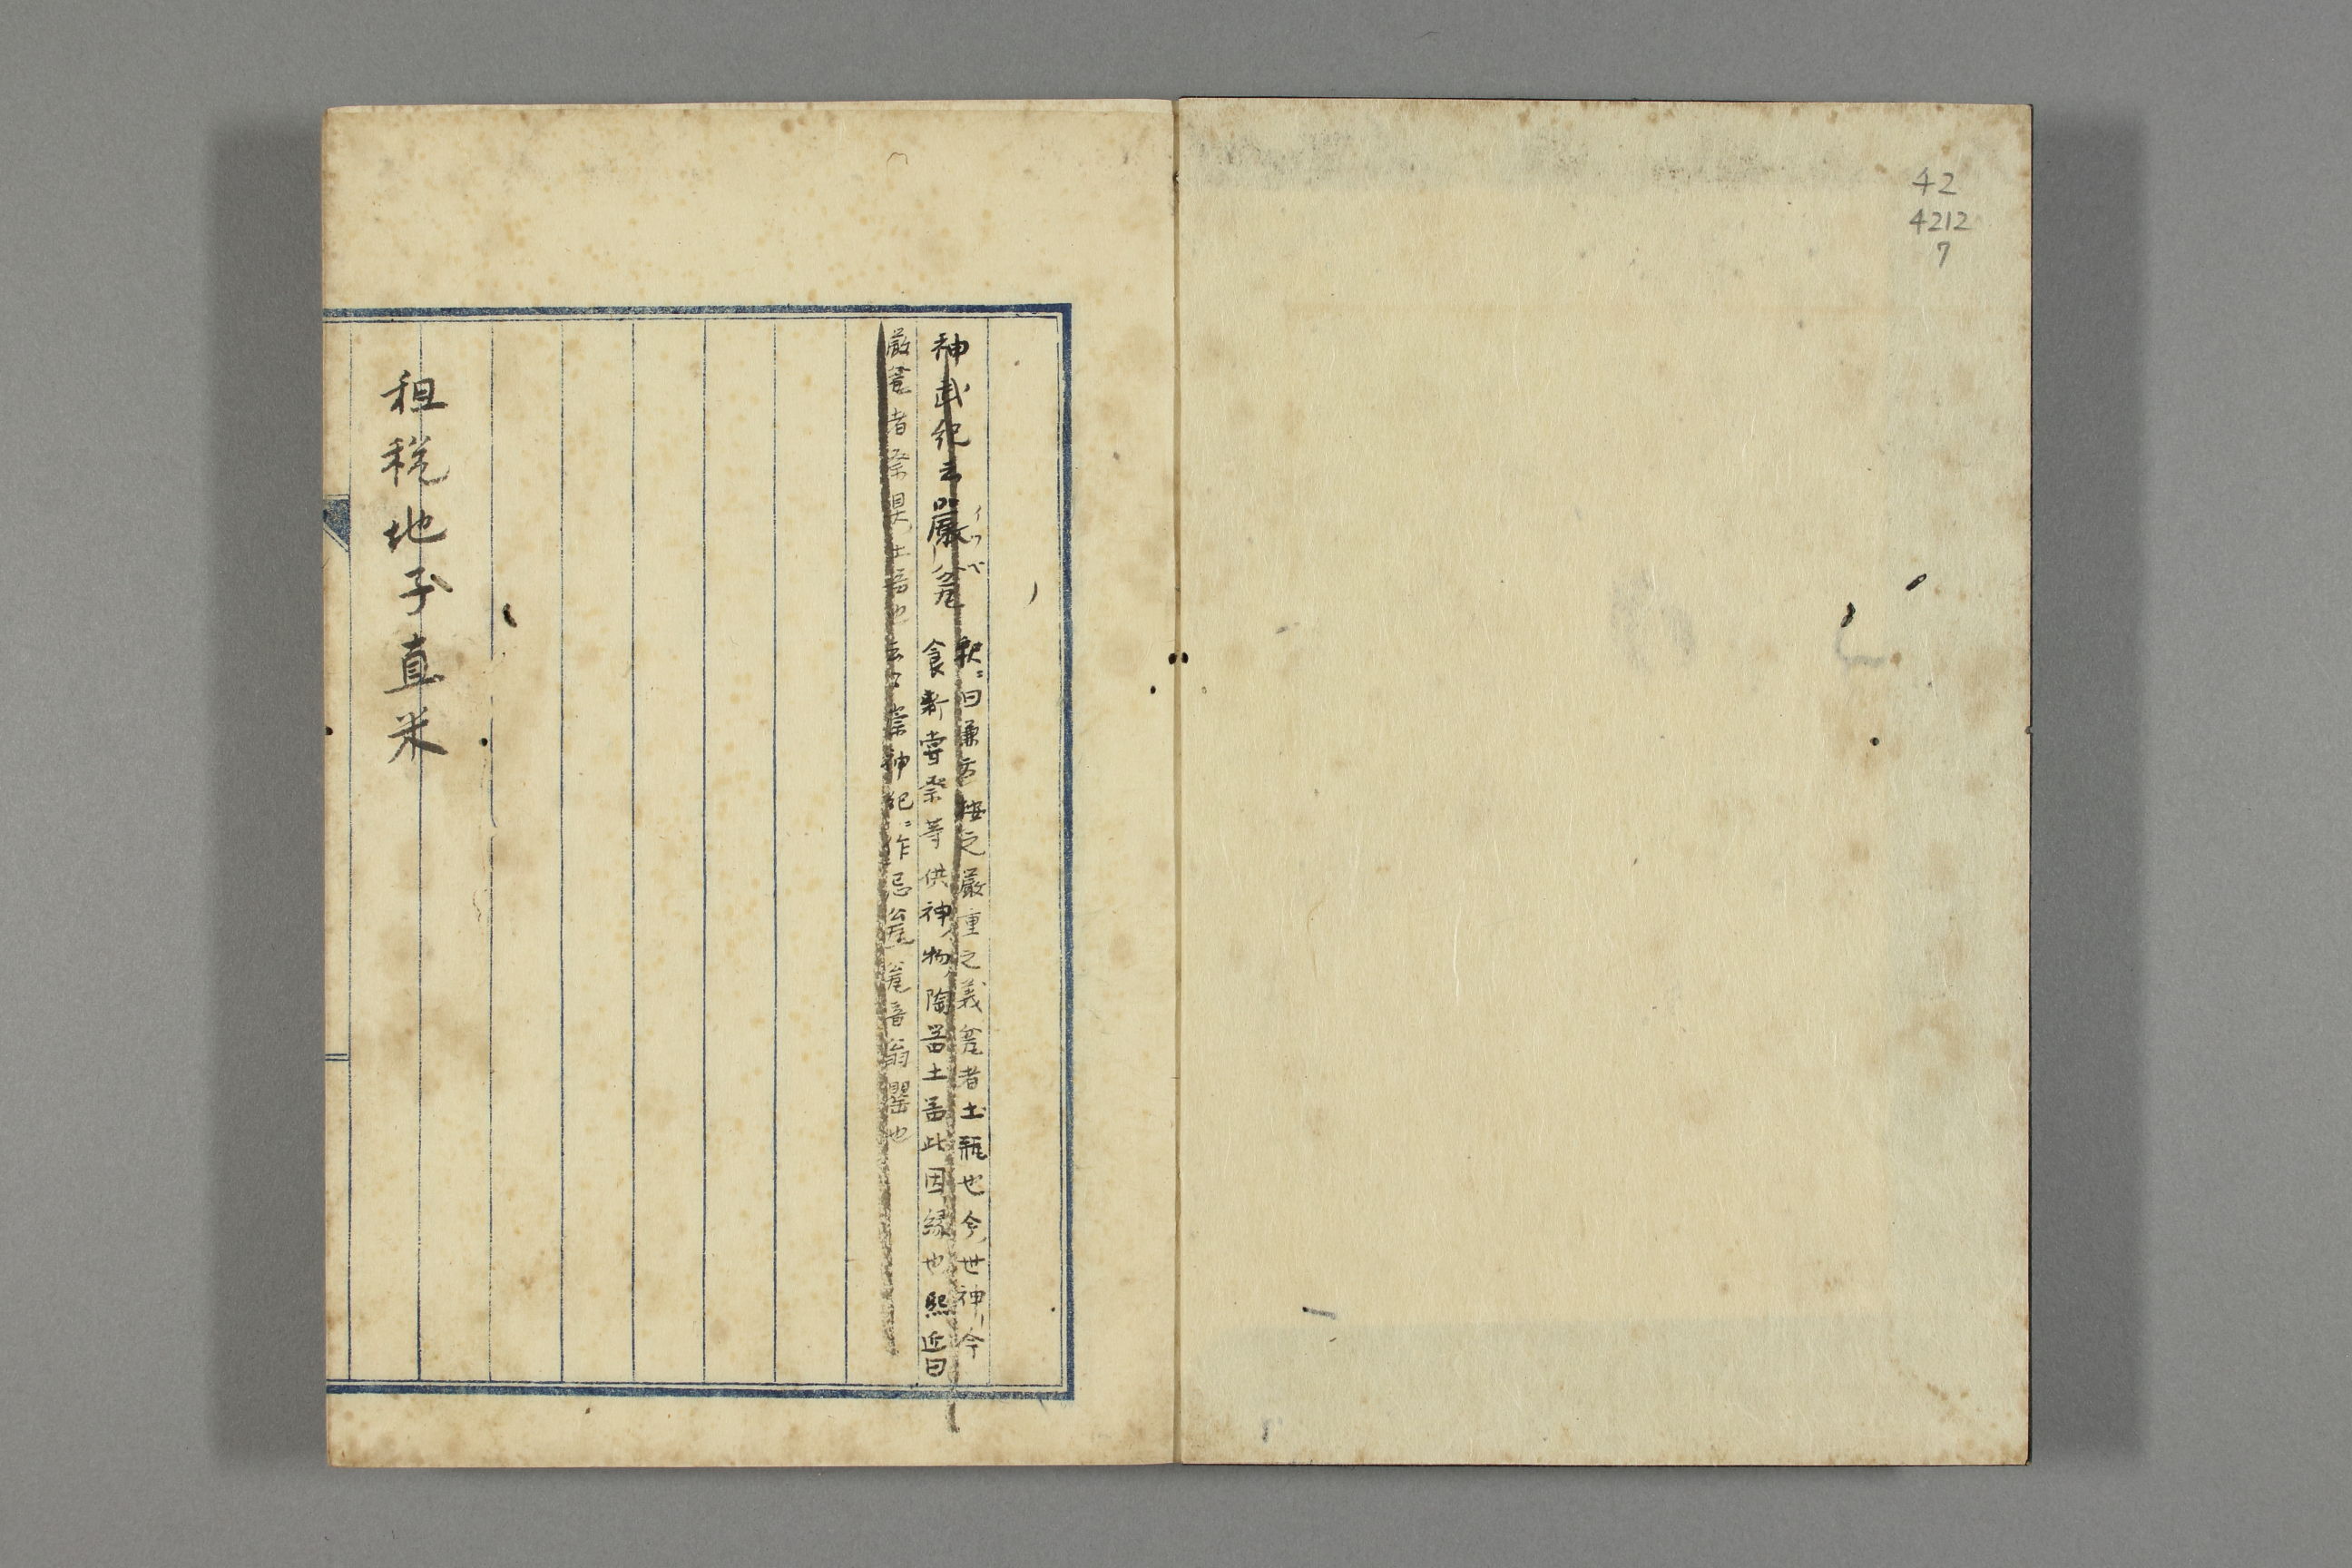 42
4212
7
神武紀云嚴瓮
イツベ
釈〻曰兼方按之嚴重之義瓮者土瓶也今世神今
食新嘗祭等供神物陶器土器此因縁也熙近曰
嚴瓮者祭具土器也云々崇神紀〻作忌瓮瓮音翁罌也
租税地子直米